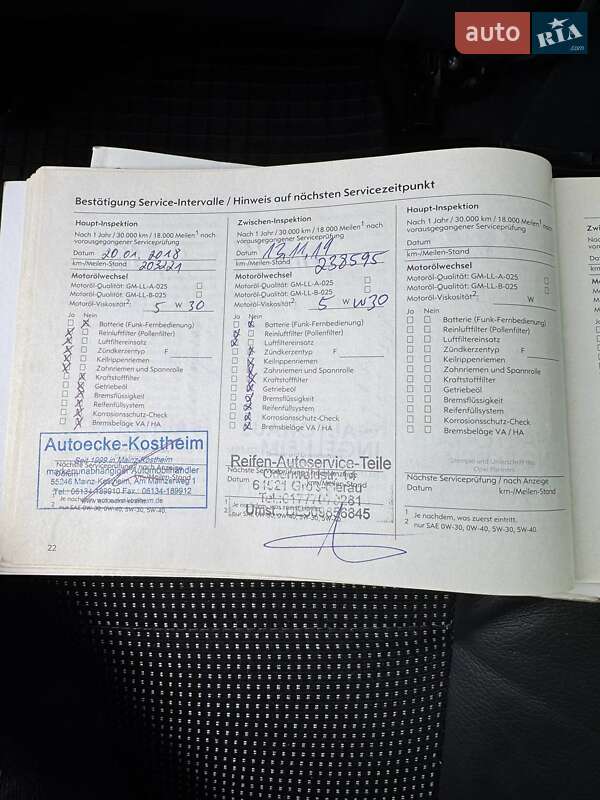 auto RIA.com
Bestätigung Service-Intervalle / Hinweis auf nächsten Servicezeitpunkt
Haupt-Inspektion
Nach 1 Jahr / 30.000 km / 18.000 Meilen¹ nach
vorausgegangener Serviceprüfung
Datum 20.01.2018
km-/Meilen-Stand 203221
Motorölwechsel
Motoröl-Qualität: GM-LL-A-025
Motoröl-Qualität: GM-LL-B-025
Motoröl-Viskosität²: 5 W 30
Ja Nein
Batterie (Funk-Fernbedienung)
Reinluftfilter (Pollenfilter)
Luftfiltereinsatz
Zündkerzentyp F
Keilrippenriemen
Zahnriemen und Spannrolle
Kraftstofffilter
Getriebeöl
Bremsflüssigkeit
Reifenfüllsystem
Korrosionsschutz-Check
Bremsbeläge VA / HA
Autoecke-Kostheim
Seit 1999 in Mainz-Kostheim
Nächste Serviceprüfung / nach Anzeige
markenunabhängiger Automobilhändler
55246 Mainz-Kostheim, Am Mainzerweg 1
Tel.: 06134-189910 Fax.: 06134-189912
www.autoecke-kostheim.de
nur SAE 0W-30, 0W-40, 5W-30, 5W-40.
22
Zwischen-Inspektion
Nach 1 Jahr / 30.000 km / 18.000 Meilen¹ nach
vorausgegangener Serviceprüfung
Datum 13.11.19
km-/Meilen-Stand 238595
Motorölwechsel
Motoröl-Qualität: GM-LL-A-025
Motoröl-Qualität: GM-LL-B-025
Motoröl-Viskosität²: 5 W W30
Ja Nein
Batterie (Funk-Fernbedienung)
Reinluftfilter (Pollenfilter)
Luftfiltereinsatz
Zündkerzentyp F
Keilrippenriemen
Zahnriemen und Spannrolle
Kraftstofffilter
Getriebeöl
Bremsflüssigkeit
Reifenfüllsystem
Korrosionsschutz-Check
Bremsbeläge VA / HA
Reifen-Autoservice-Teile
Nächste Serviceprüfung
Haupt-Inspektion
Nach 1 Jahr / 30.000 km / 18.000 Meilen¹ nach
vorausgegangener Serviceprüfung
Datum
km-/Meilen-Stand
Motorölwechsel
Motoröl-Qualität: GM-LL-A-025
Motoröl-Qualität: GM-LL-B-025
Motoröl-Viskosität²: W
Ja Nein
Batterie (Funk-Fernbedienung)
Reinluftfilter (Pollenfilter)
Luftfiltereinsatz
Zündkerzentyp F
Keilrippenriemen
Zahnriemen und Spannrolle
Kraftstofffilter
Getriebeöl
Bremsflüssigkeit
Reifenfüllsystem
Korrosionsschutz-Check
Bremsbeläge VA / HA
Stempel und Unterschrift des
Opel Partners
Nächste Serviceprüfung / nach Anzeige
Datum km-/Meilen-Stand
1 Je nachdem, was zuerst eintritt.
2 nur SAE 0W-30, 0W-40, 5W-30, 5W-40.